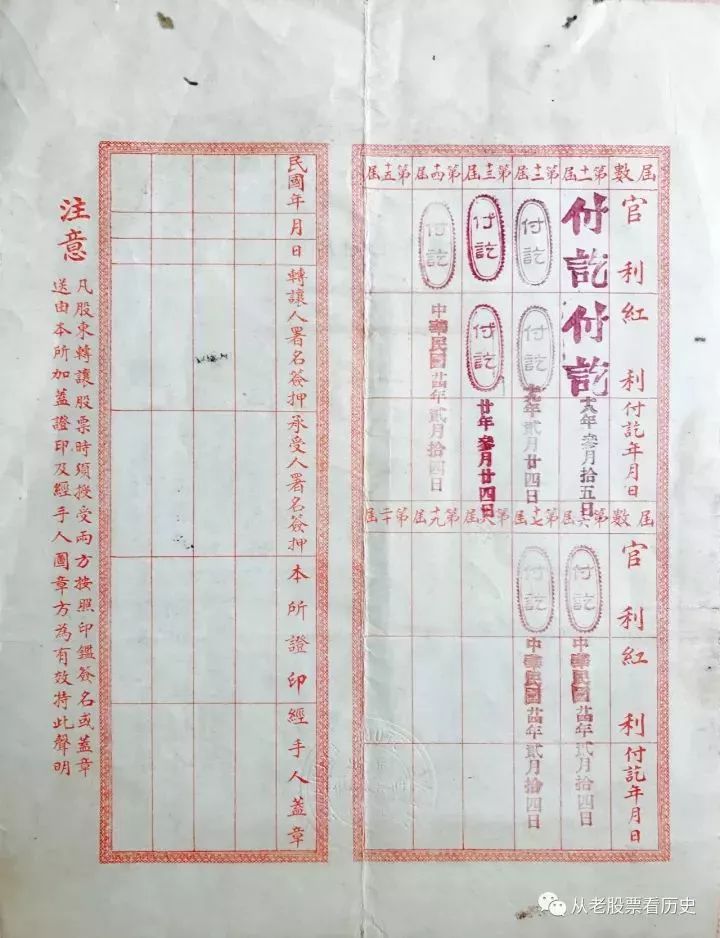 屆數
官利
紅利
付訖年月日
第十一屆
付訖
付訖
十八年叁月拾五日
第十二屆
付訖
付訖
十九年貳月廿四日
第十三屆
付訖
付訖
廿年叁月廿四日
第十四屆
付訖
中華民國廿四年貳月拾四日
第十五屆
屆數
官利
紅利
付訖年月日
第十六屆
付訖
中華民國廿四年貳月拾四日
第十七屆
付訖
中華民國廿四年貳月拾四日
第十八屆
第十九屆
第二十屆
民國年月日
轉讓人署名簽押
承受人署名簽押
本所證印
經手人蓋章
注意
凡股東轉讓股票時須授受兩方按照印鑑簽名或蓋章
送由本所加蓋證印及經手人圖章方為有效特此聲明
从老股票看历史